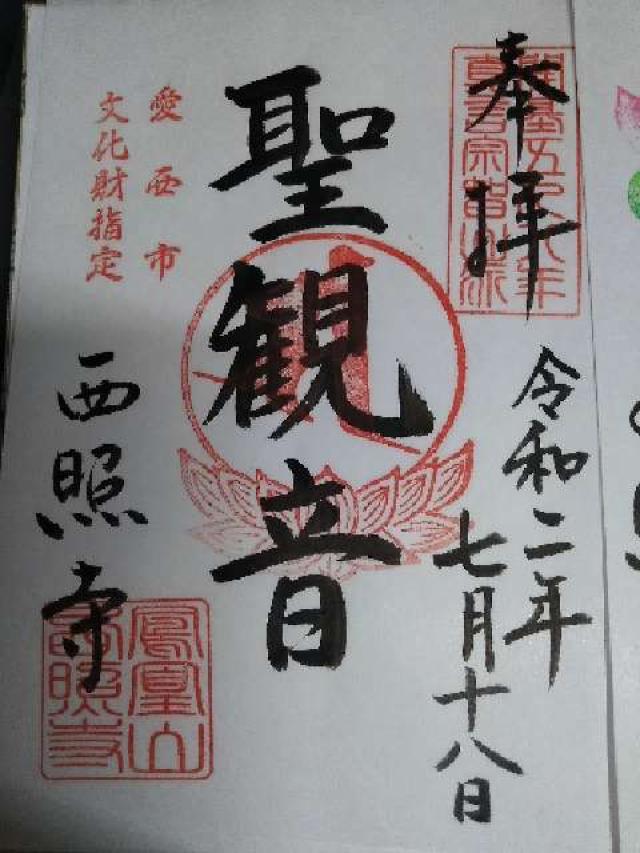 奉拝
令和二年
七月十八日
聖観音
愛西市
文化財指定
西照寺
鳳凰山
西照寺